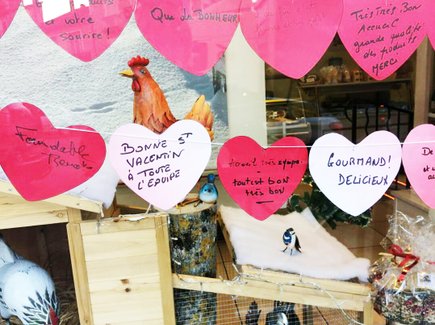 à votre
sourire!
Que du BONHEUR
Très Très Bon
Accueil
grande qualité
des produits
MERCI
BONNE ST
VALENTIN
À TOUTE
L'ÉQUIPE
Accueil très sympa
tout est bon
très bon
GOURMAND!
DELICIEUX